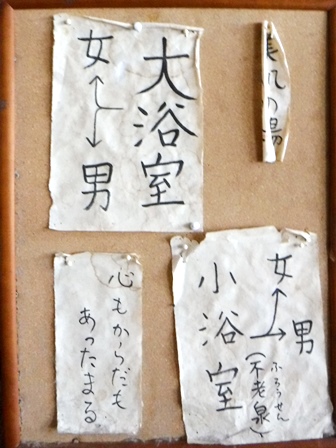 大浴室
女↔男
美肌の湯
心もからだも
あったまる
女↔男
ふろうせん
(不老泉)
小浴室